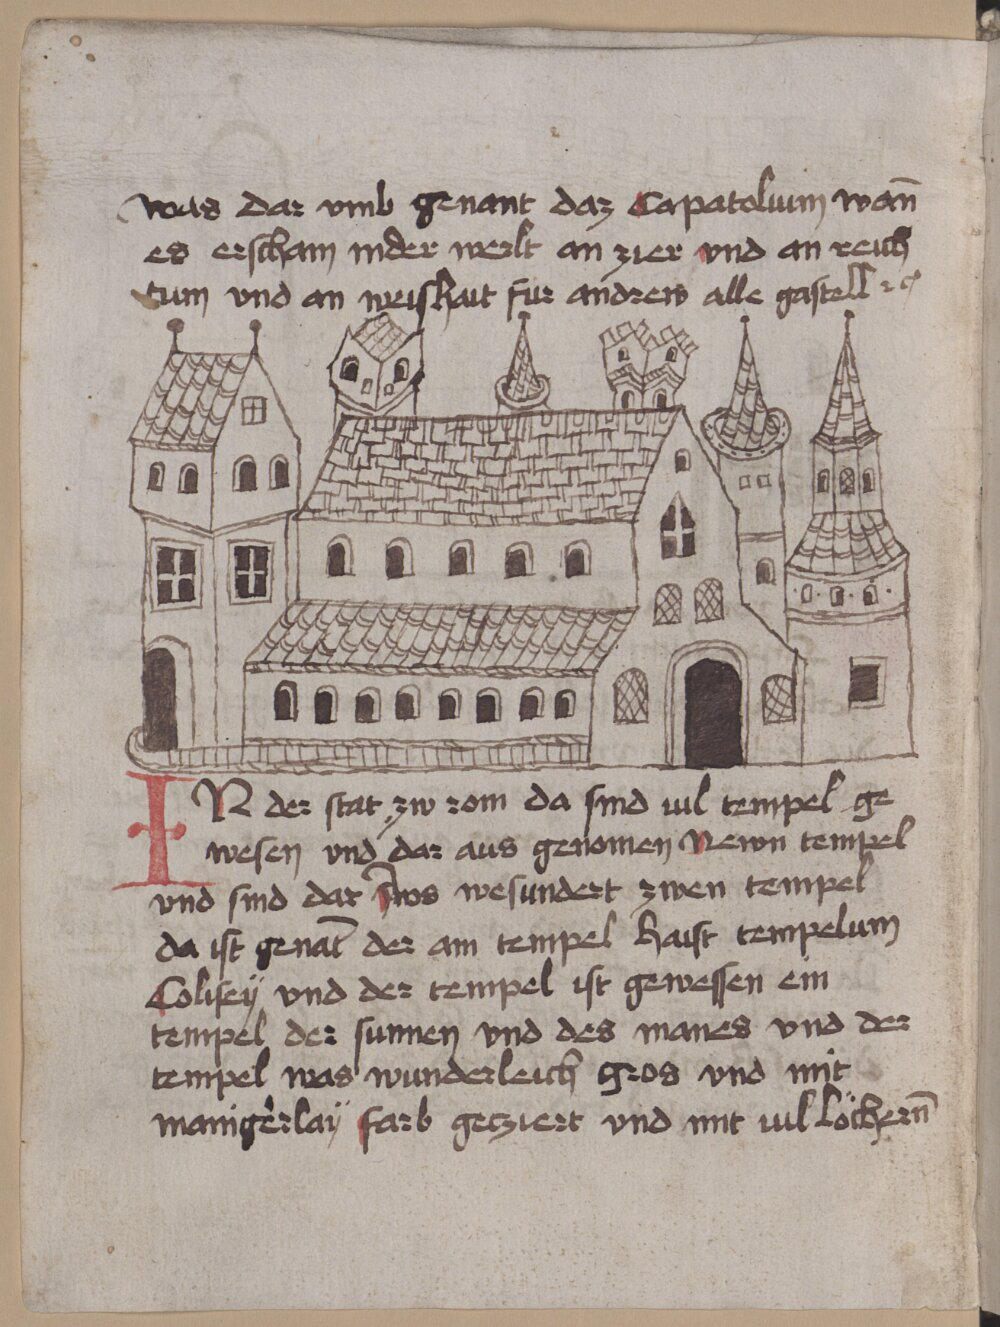 was dar vmb genant daz Capatolium wan̄
es erscham inder werlt an zier vnd an reich
tum vnd an weishait für andrew alle gastell ꝛc
IN der stat zw rom da sind uil tempel ge
wesen vnd dar aus genomen Newn tempel
vnd sind dar wesundert zwen tempel
da ist genāt der am tempel haist tempelum
Colisey̋ vnd der tempel ist gewessen ein
tempel der sunnen vnd des manes vnd der
tempel was wunderleich gros vnd mit
manigerlaÿ farb getziert vnd mit uil löchern̄